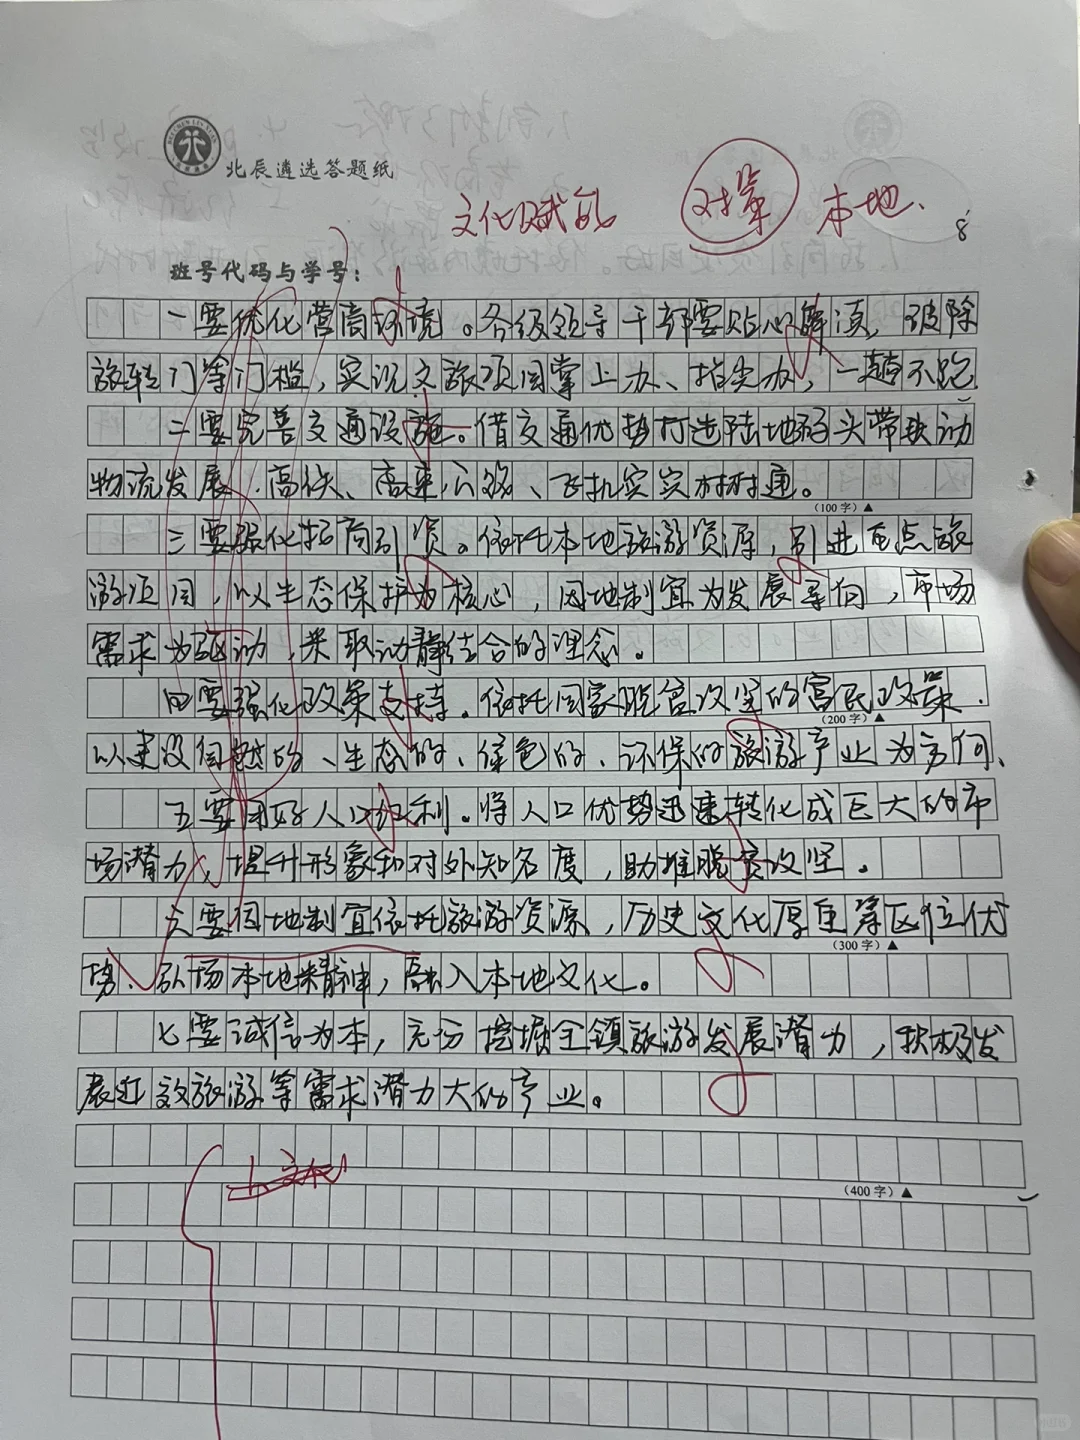 北辰遴选答题纸
文化赋能 对策 本地.
8
班号代码与学号：
一要优化营商环境。各级领导干部要贴心解渎，破除
旋转门等门槛，实现文旅项目掌上办、指尖办，一趟不跑
二要完善交通设施。借交通优势打造陆地码头带动
物流发展.高铁、高速公路、飞机实实村村通。
(100字)▲
三要强化招商引资。依托本地旅游资源，引进重点旅
游项目，以生态保护为核心，因地制宜为发展导向，市场
需求为驱动，采取动静结合的理念。
四要强化政策支持。依托国家脱贫攻坚的富民政策.
(200字)▲
以建设自然的、生态的、绿色的、环保的旅游产业为方向、
五要用好人口红利。将人口优势迅速转化成巨大的市
场潜力，提升形象和对外知名度，助推脱贫攻坚。
六要因地制宜依托旅游资源，历史文化厚重等区位优
(300字)▲
势、弘扬本地精神，融入本地文化。
七要诚信为本，充份挖掘全镇旅游发展潜力，积极发
展近效旅游等需求潜力大的产业。
(400字)▲